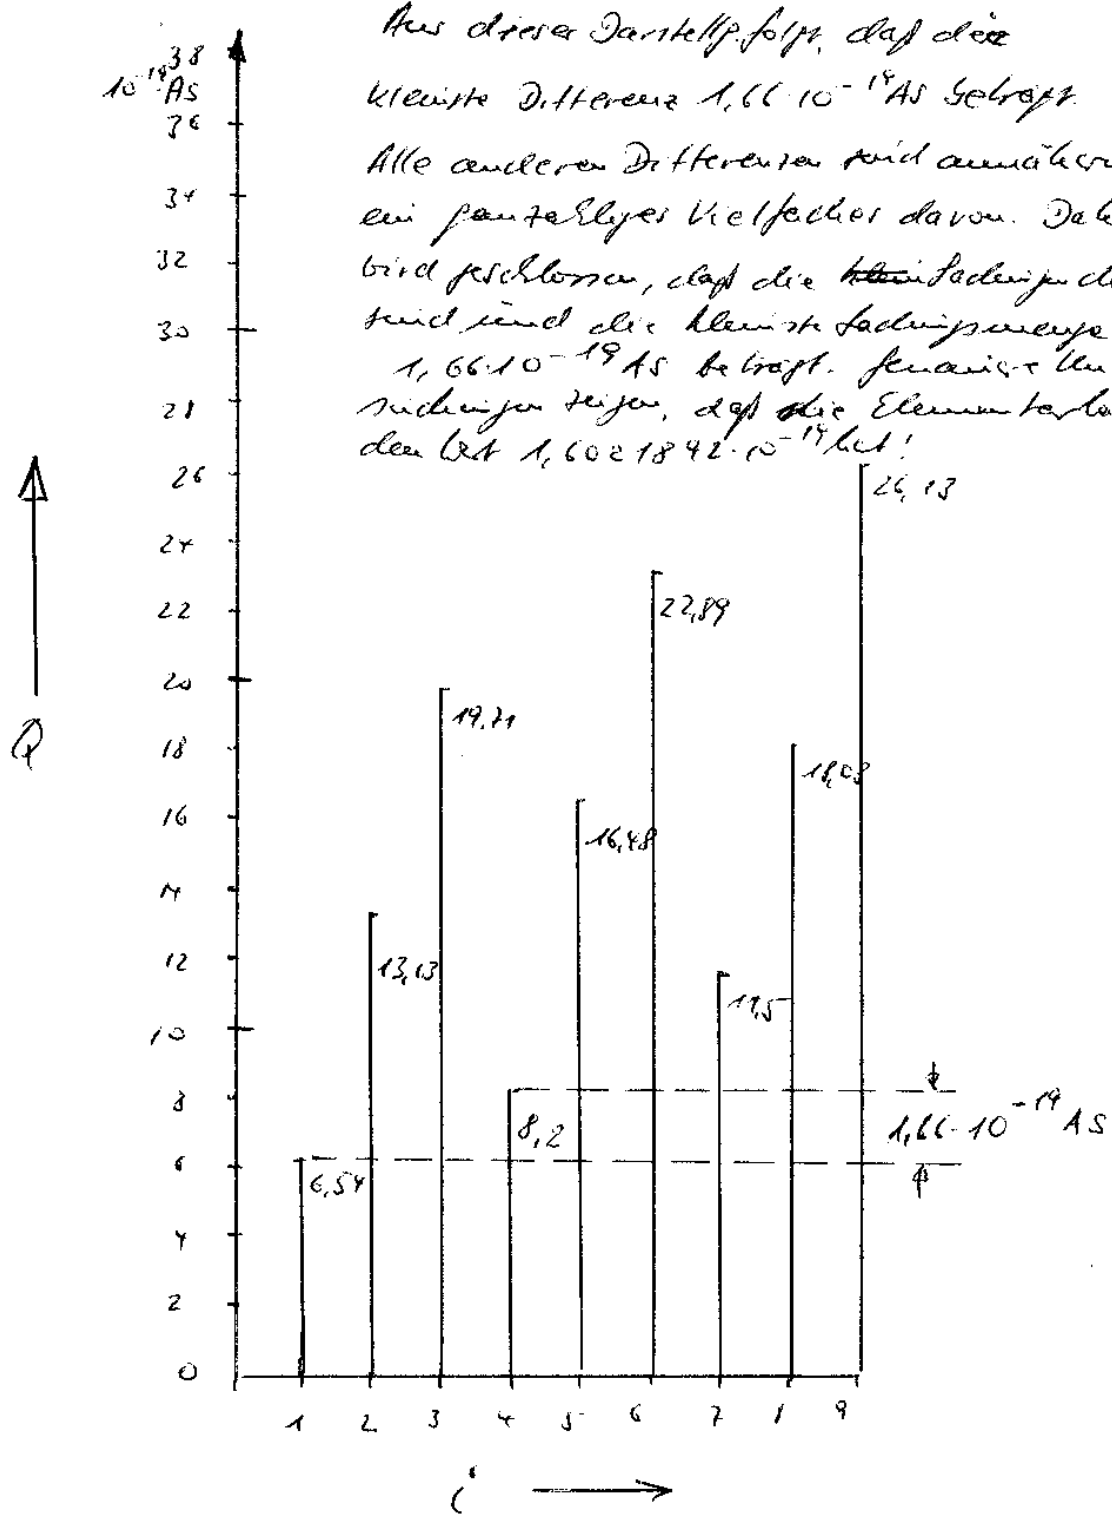 Aus dieser Darstellg. folgt, daß die
kleinste Differenz 1,66·10⁻¹⁹ As beträgt.
Alle anderen Differenzen sind annäher
ein ganzzahliges Vielfaches davon. Dah
wird geschlossen, daß die Ladungen d
sind und die kleinste Ladungsmenge
1,66·10⁻¹⁹ As beträgt. Genauere Un
suchungen zeigen, daß die Elementarla
den Wert 1,6021842·10⁻¹⁹ hat!
38
10⁻¹⁹ As
36
34
32
30
28
26
24
22
20
18
16
14
12
10
8
6
4
2
0
Q
26,13
22,89
19,71
18,03
16,48
13,13
11,5
8,2
1,66·10⁻¹⁹ As
6,54
1 2 3 4 5 6 7 8 9
i